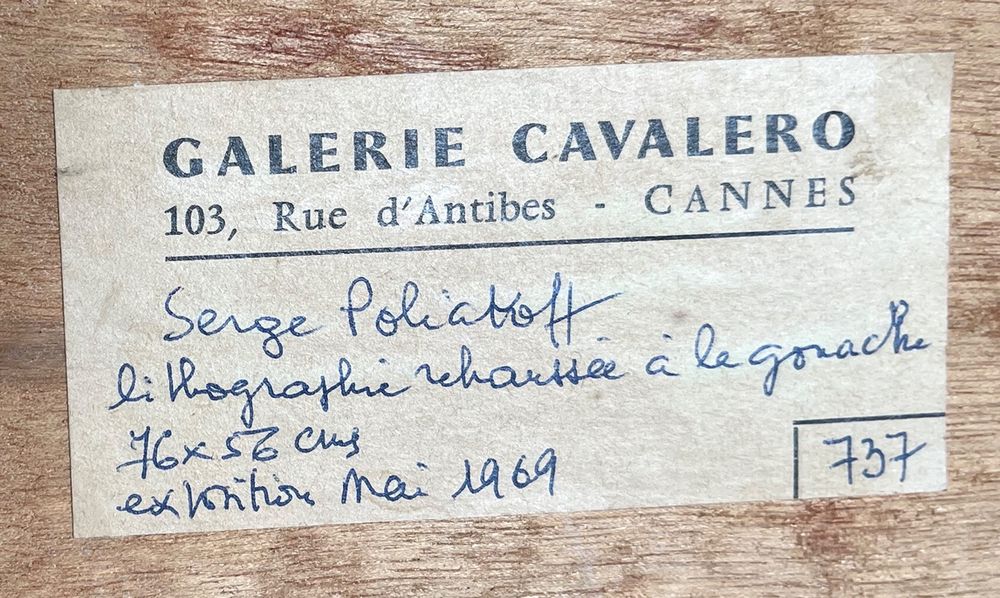 GALERIE CAVALERO
103, Rue d'Antibes - CANNES
Serge Poliakoff
lithographie rehaussée à la gouache
76x56 cms
exposition Mai 1969
737